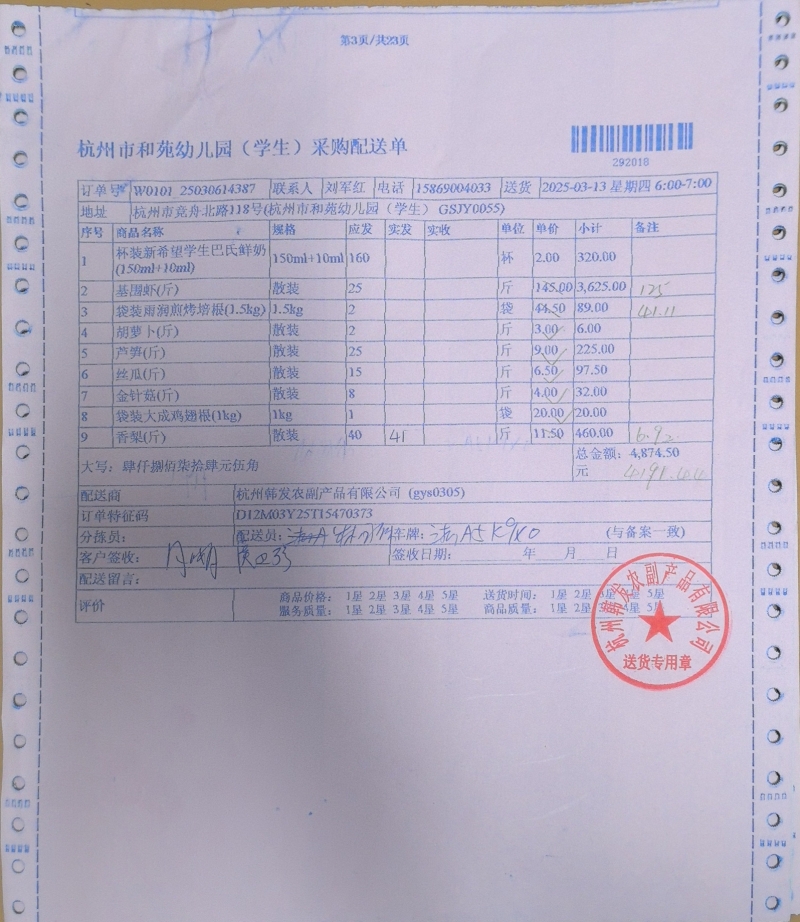 第3页/共23页
杭州市和苑幼儿园（学生）采购配送单
292018
订单号 W0101_25030614387 联系人 刘军红 电话 15869004033 送货 2025-03-13 星期四 6:00-7:00
地址 杭州市竞舟北路118号(杭州市和苑幼儿园（学生） GSJY0055)
序号 商品名称 规格 应发 实发 实收 单位 单价 小计 备注
1 杯装新希望学生巴氏鲜奶 150ml+10ml 160 杯 2.00 320.00
(150ml+10ml)
2 基围虾(斤) 散装 25 斤 145.00 3,625.00 125
3 袋装雨润煎烤培根(1.5kg) 1.5kg 2 袋 44.50 89.00 41.11
4 胡萝卜(斤) 散装 2 斤 3.00 6.00
5 芦笋(斤) 散装 25 斤 9.00 225.00
6 丝瓜(斤) 散装 15 斤 6.50 97.50
7 金针菇(斤) 散装 8 斤 4.00 32.00
8 袋装大成鸡翅根(1kg) 1kg 1 袋 20.00 20.00
9 香梨(斤) 散装 40 41 斤 11.50 460.00 6.92
大写：肆仟捌佰柒拾肆元伍角 总金额：4,874.50
元 4191.44
配送商 杭州韩发农副产品有限公司 (gys0305)
订单特征码 D12M03Y25T15470373
分拣员： 配送员： 车牌： (与备案一致)
客户签收： 签收日期： 年 月 日
配送留言：
评价 商品价格： 1星 2星 3星 4星 5星 送货时间： 1星 2星 3星 4星 5星
服务质量： 1星 2星 3星 4星 5星 商品质量： 1星 2星 3星 4星 5星
杭州韩发农副产品有限公司
送货专用章